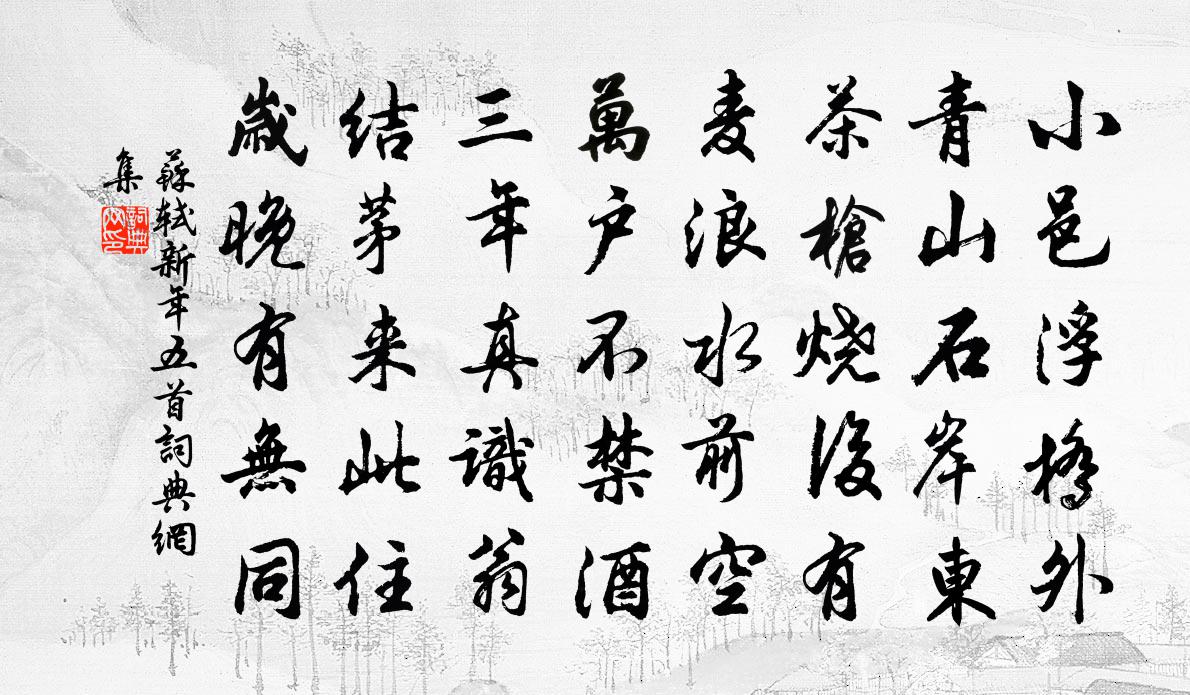 小邑浮橋外
青山石岸東
茶槍烧後有
麦浪水前空
萬户不禁酒
三年真識翁
结茅来此住
歲晚有無同
蘇轼新年五首詞典網
集
詞典網印